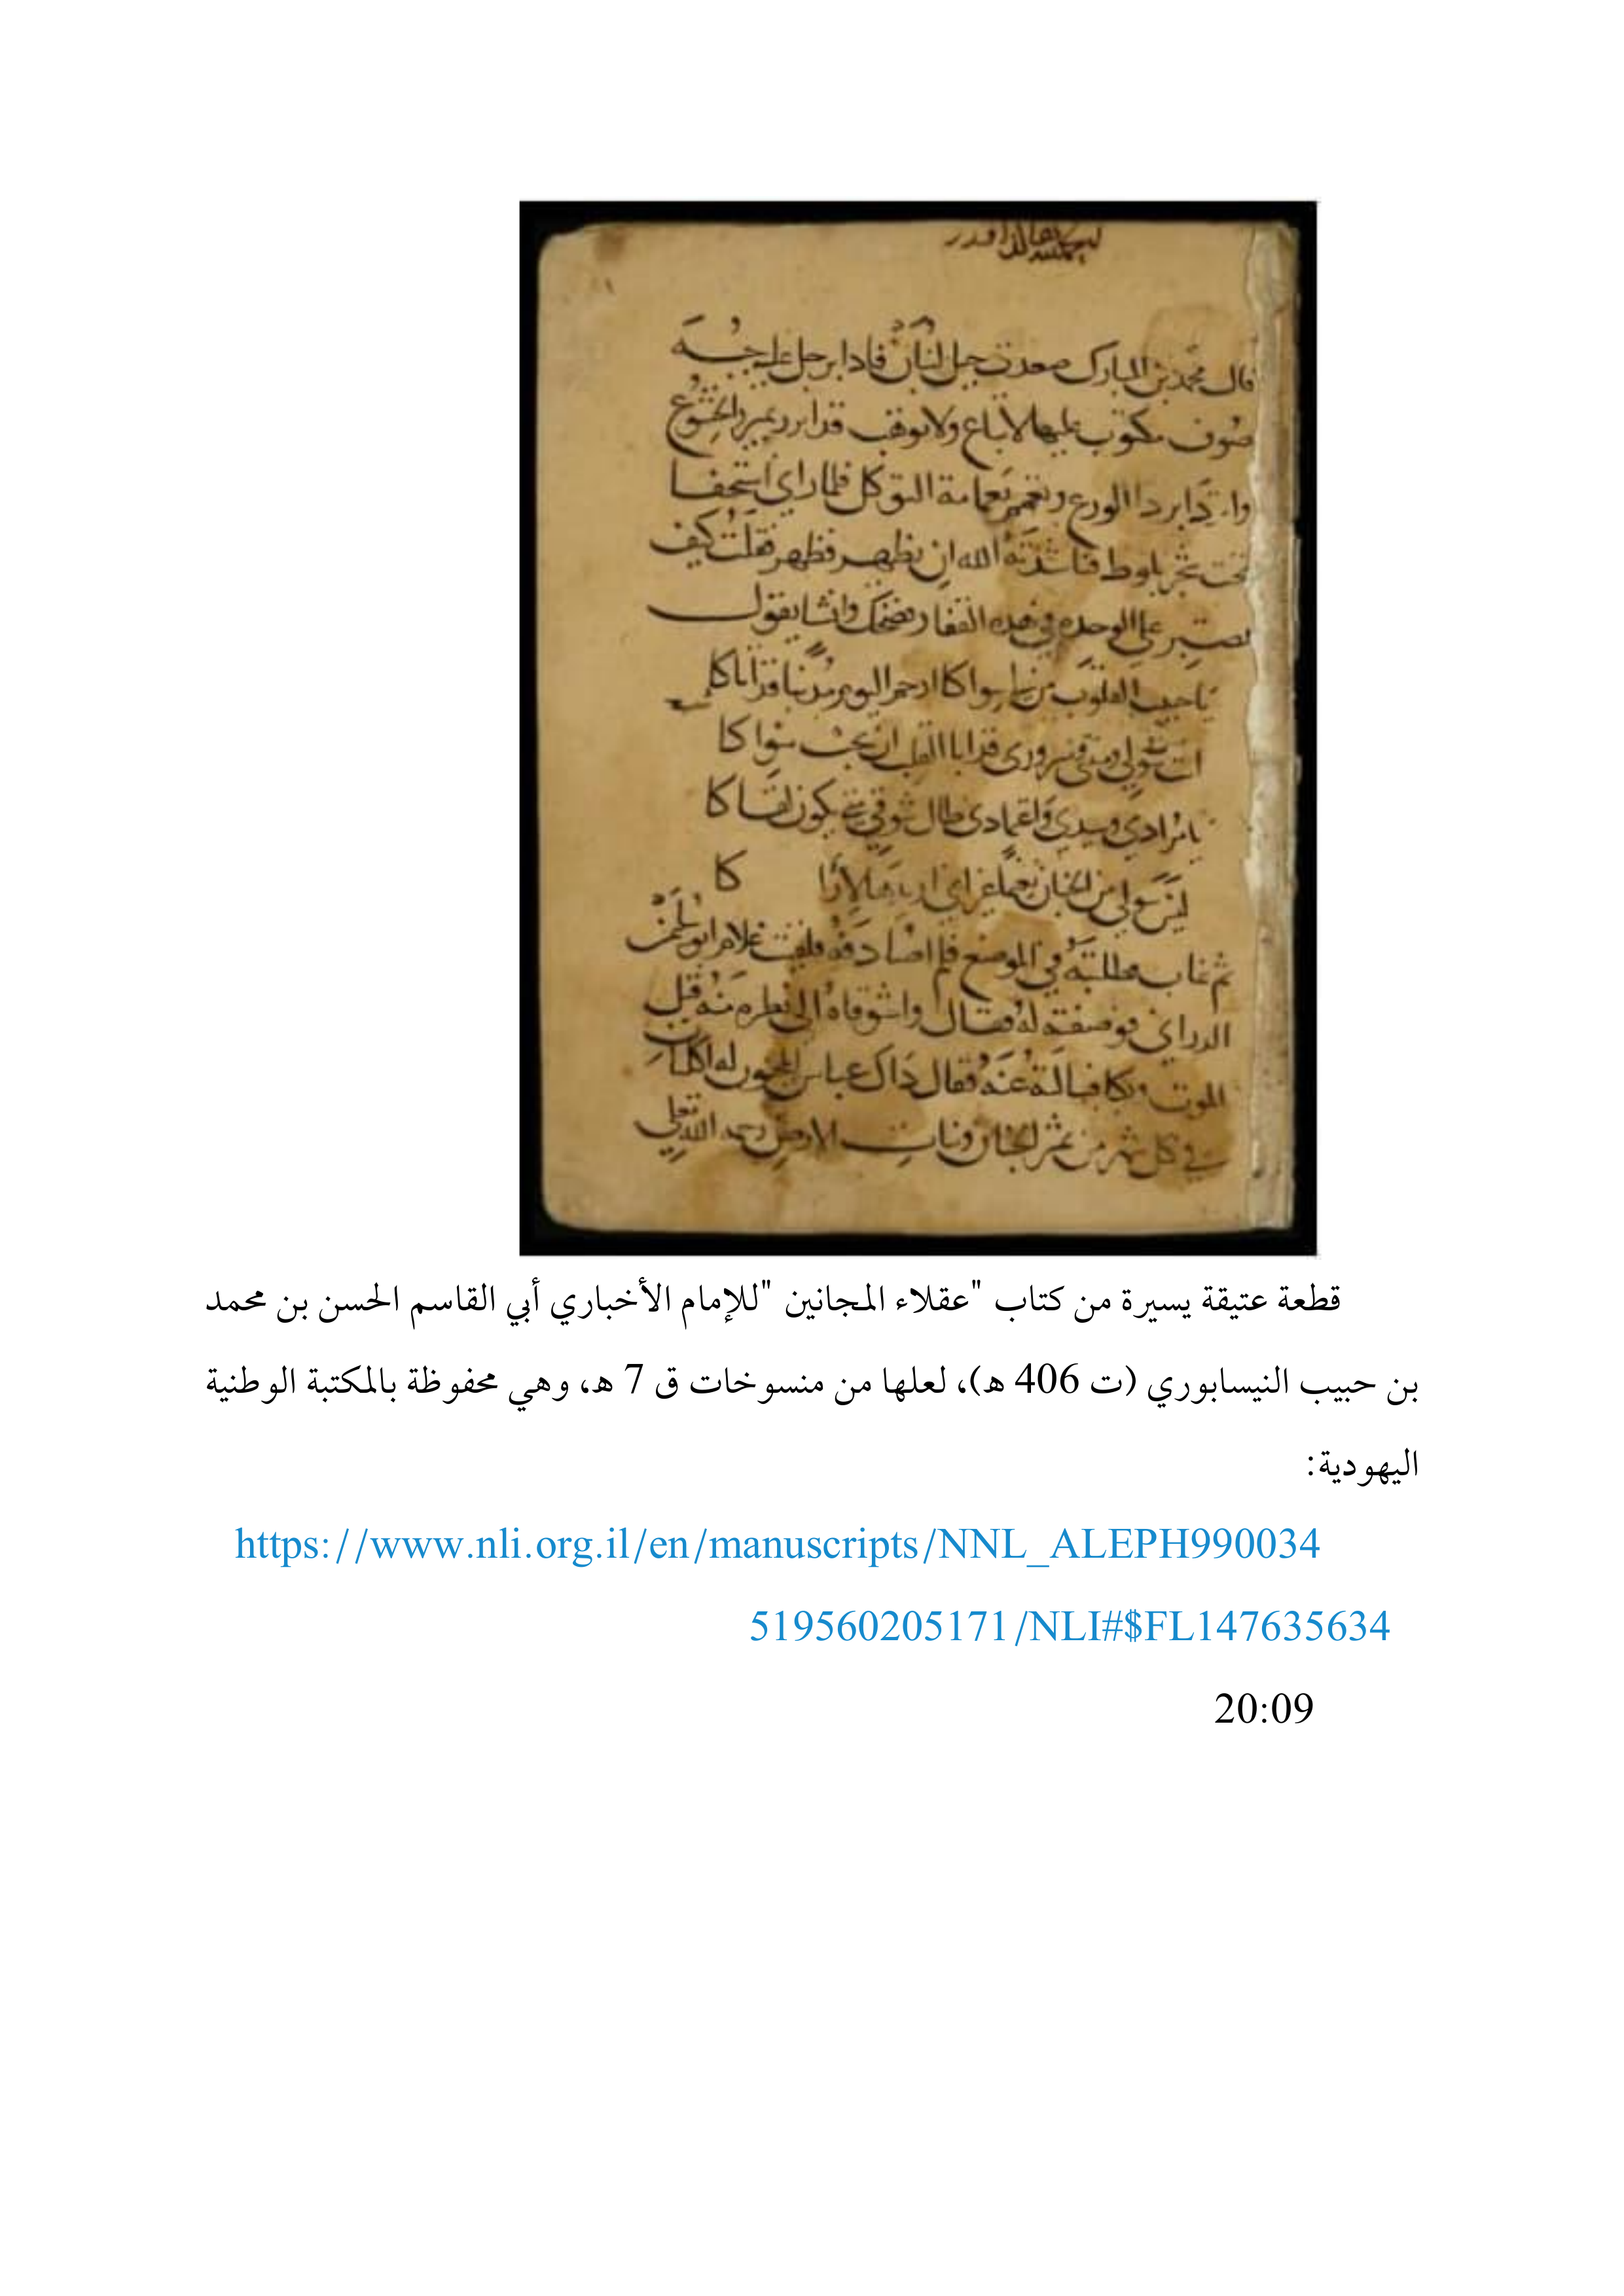 قال محمد بن المبارك صعدت جبل لبنان فاذا برجل عليه جبة
صوف مكتوب عليها لا تباع ولا توهب قد اتزر بميزر الخشوع
وارتدا بردا الورع وتعمم بعمامة التوكل فلما راي استخفا
تحت شجر بلوط فناشدته الله ان يظهر فظهر فقلت كيف
تصبر على الوحده في هذه القفار فضحك وانشا يقول
يا حبيب القلوب من لي سواكا ارحم اليوم مذنبا قد اتاكا
انت سولي ومنيتي وسروري قد ابا القلب ان يحب سواكا
يا مرادي وسيدي واعتمادي طال شوقي متى يكون لقاكا
ليس سولي من الجنان نعيما غير اني اريدها لاراكا
ثم غاب فطلبته في الموضع فلم اصادفه فلقيت غلام ابو سليمن
الدراني فوصفته له فقال واشوقاه الى نظره منه قبل
الموت وبكا فسالته عنه فقال ذاك عباس المجنون له اكلتان
في كل شهر من ثمر الجنان ونبات الارض رحمه الله تعالى
قطعة عتيقة يسيرة من كتاب "عقلاء المجانين "للإمام الأخباري أبي القاسم الحسن بن محمد
بن حبيب النيسابوري (ت 406 هـ)، لعلها من منسوخات ق 7 هـ، وهي محفوظة بالمكتبة الوطنية
اليهودية:
https://www.nli.org.il/en/manuscripts/NNL_ALEPH990034
519560205171/NLI#$FL147635634
20:09